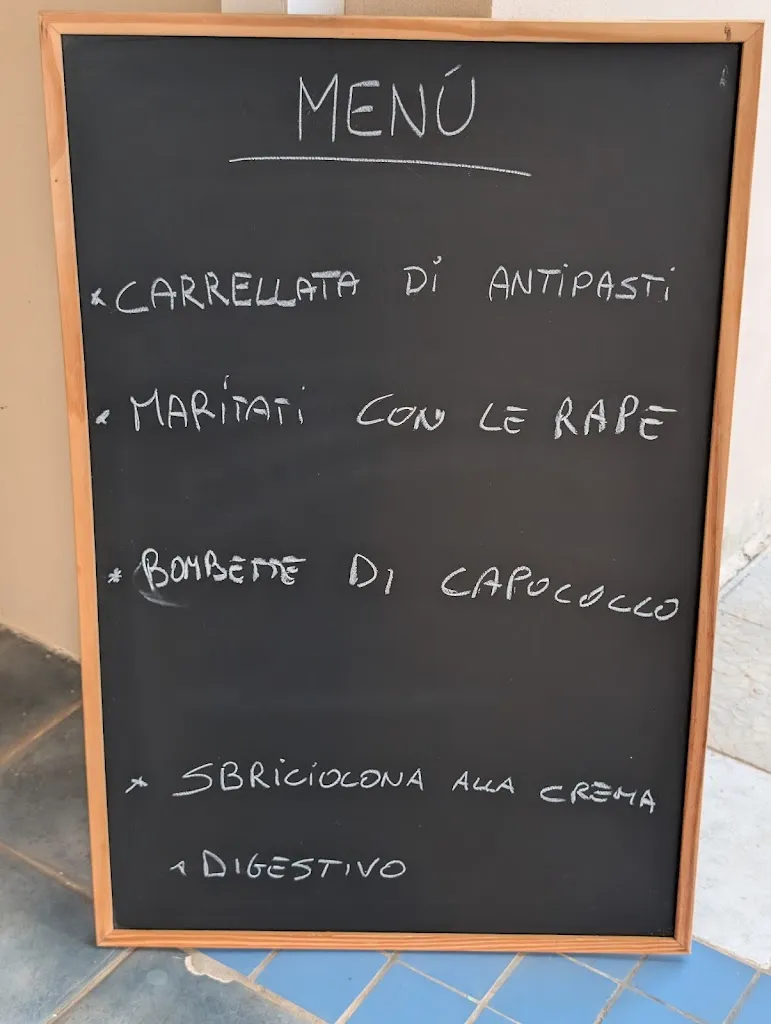 MENÚ
* CARRELLATA Di ANTiPASTi
* MARiTATi CON LE RAPE
* BOMBETTE DI CAPOCOLLO
* SBRiCiOLONA ALLA CREMA
* DIGESTIVO